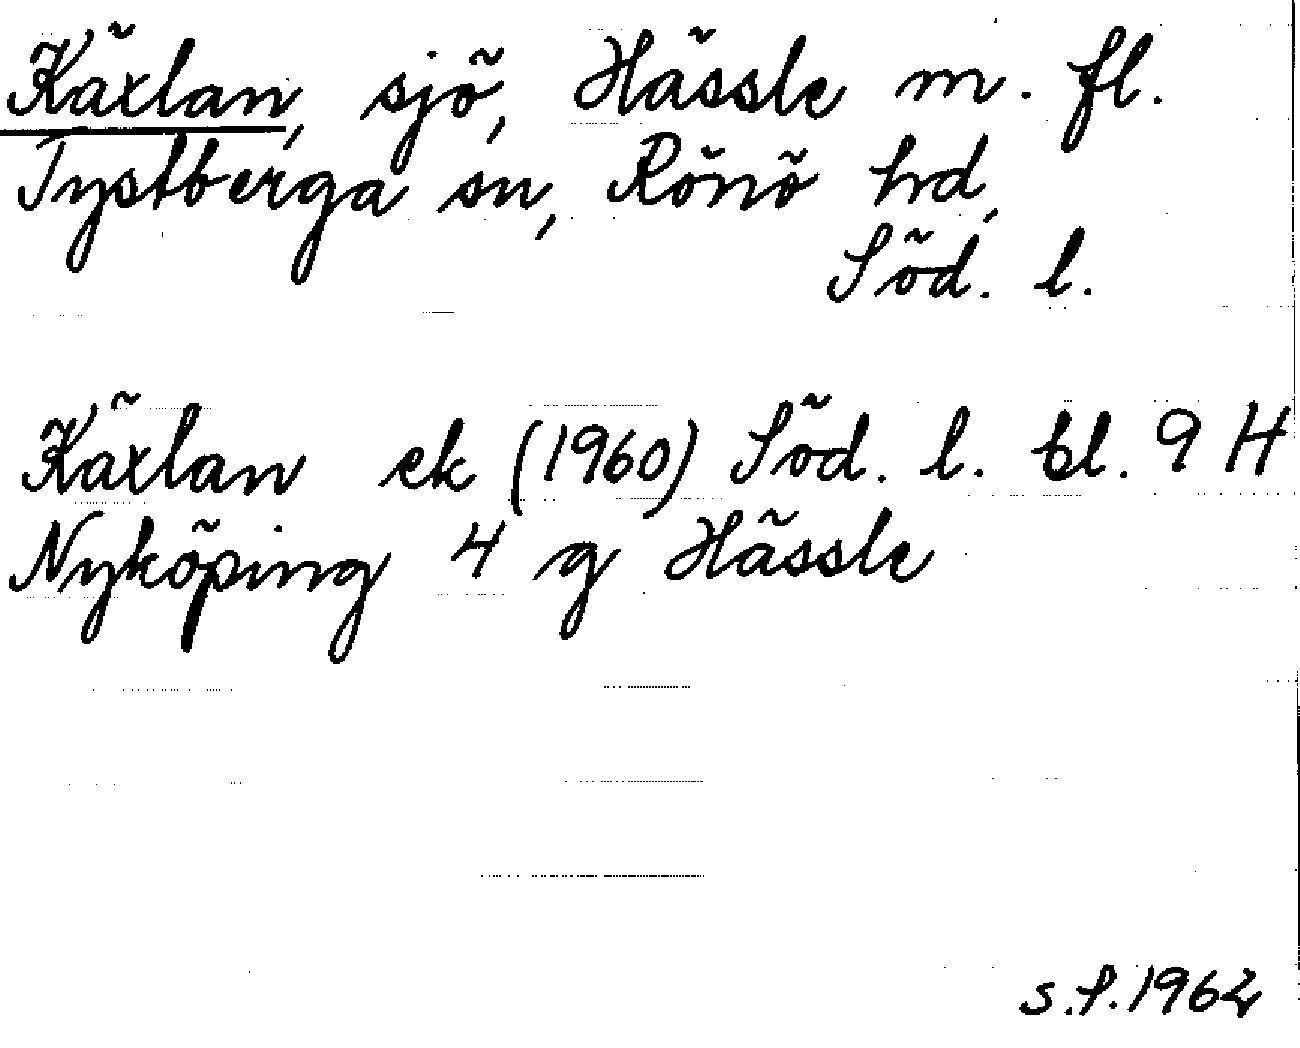 Käxlan, sjö, Hässle m. fl.
Tystberga sn, Rönö hd,
Söd. l.
Käxlan ek (1960) Söd. l. bl. 9 H
Nyköping 4 g Hässle
s.f. 1962